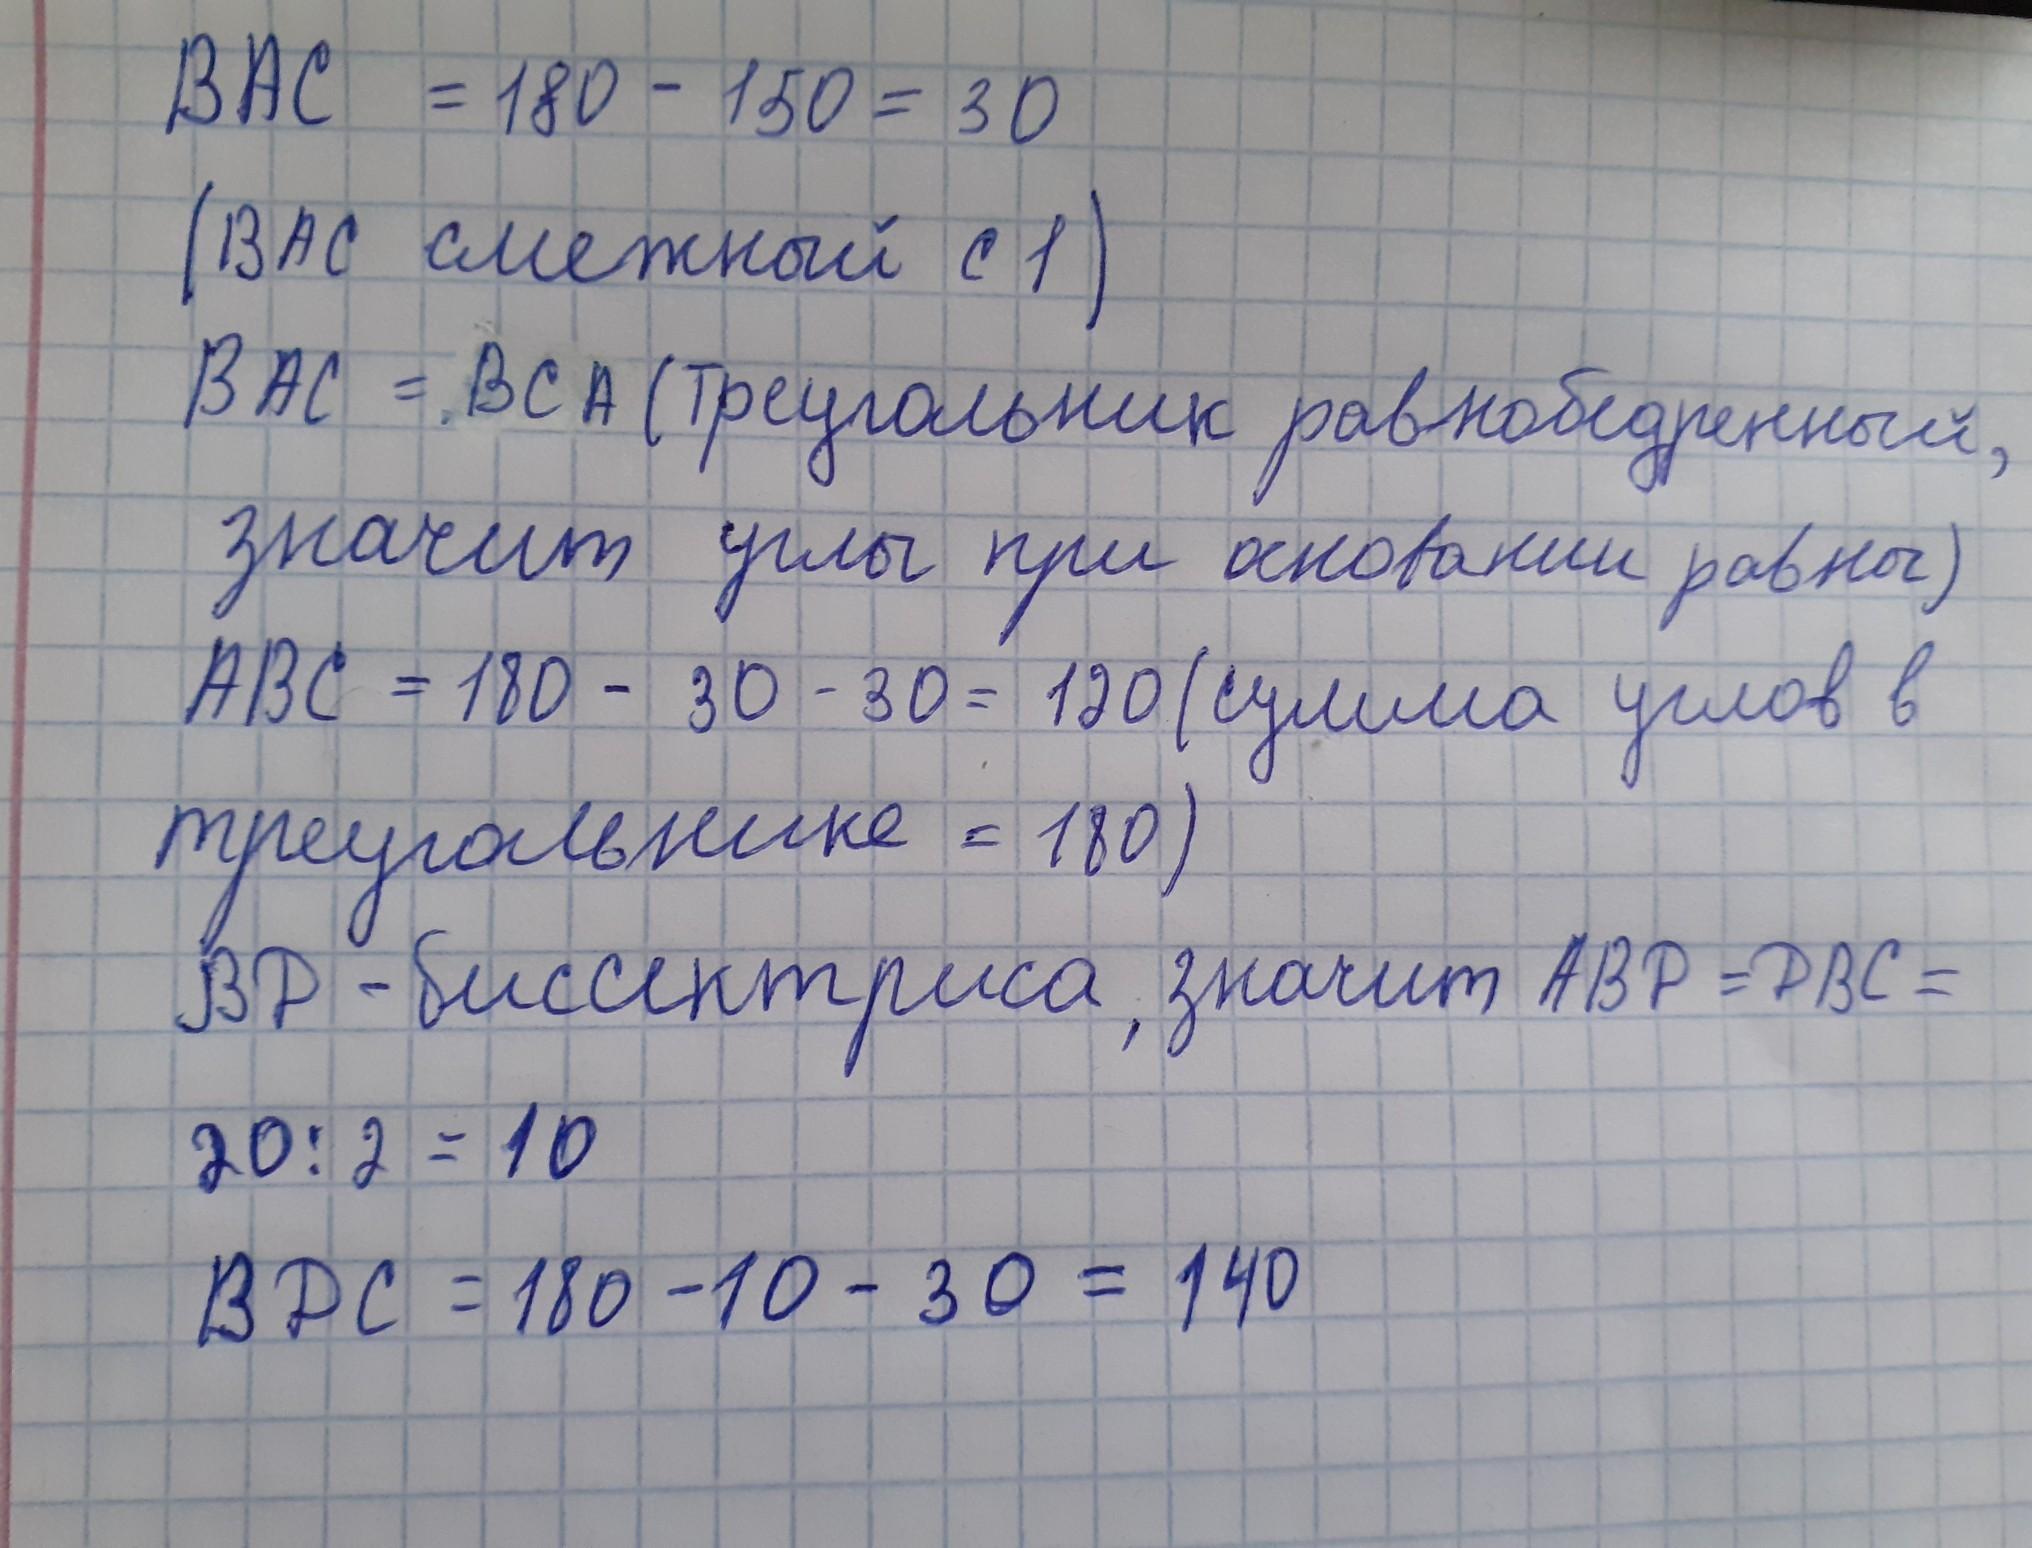 BAC = 180 - 150 = 30
(BAC смежный с 1)
BAC = BCA (Треугольник равнобедренный,
значит углы при основании равны)
ABC = 180 - 30 - 30 = 120 (сумма углов в
треугольнике = 180)
BD - биссектриса, значит ABD = DBC =
20 : 2 = 10
BDC = 180 - 10 - 30 = 140